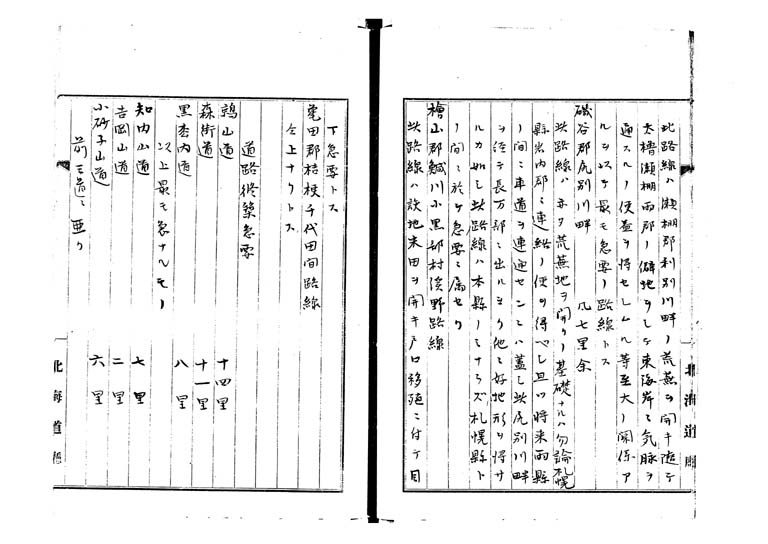 此路線ハ瀬棚郡利別川畔ノ荒蕪ヲ開キ遂テ
太櫓瀬棚両郡ノ僻地ヲシテ東海岸ト気脉ヲ
通スルノ便益ヲ得セシムル等至大ノ関係ア
ルヲ以テ最モ急要ノ路線トス
磯谷郡尻別川畔 凡七里余
此路線ハ亦タ荒蕪地ヲ開クノ基礎ナルハ勿論札幌
縣岩内郡ニ連絡ノ便ヲ得ヘシ且ツ将来両縣
ノ間ニ車道ヲ連通センニハ蓋シ此尻別川畔
ヲ経テ長万部ニ出ルヨリ他ニ好地形ヲ得サ
ルカ如シ此路線ハ本縣ノミナラズ札幌縣ト
ノ間ニ於テ急要ニ属セリ
檜山郡鰔川小黒部村俣野路線
此路線ハ該地未田ヲ開キ戸口移殖ニ付テ目
下急要トス
亀田郡桔梗千代田間路線
仝上ナリトス
道路修築急要
鶉山道 十四里
森街道 十一里
黒松内道 八里
以上最モ急ナルモノ
知内山道 七里
吉岡山道 二里
小砂子山道 六里
前三道ニ亜ク
北海道廳